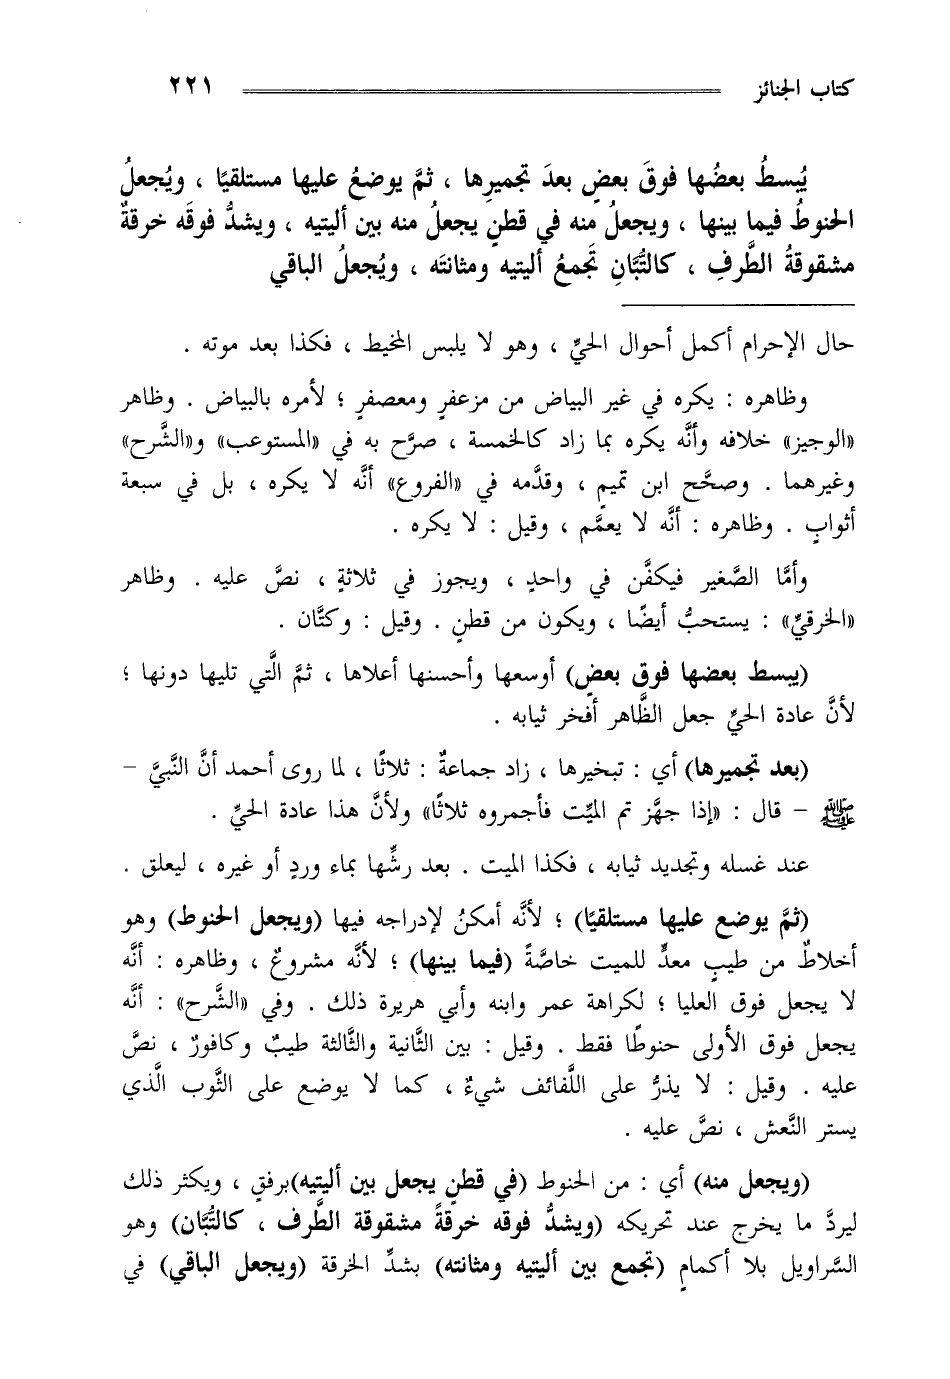 كتاب الجنائز ٢٢١
يُبسطُ بعضُها فوقَ بعضٍ بعدَ تجميرِها ، ثمَّ يوضعُ عليها مستلقيًا ، ويُجعلُ
الحنوطُ فيما بينها ، ويجعلُ منه في قطنٍ يجعلُ منه بين أليتيه ، ويشدُّ فوقَه خرقةٌ
مشقوقةُ الطَّرفِ ، كالتُّبَّانِ تَجمعُ أليتيه ومثانتَه ، ويُجعلُ الباقي
حال الإحرام أكمل أحوال الحيِّ ، وهو لا يلبس المخيط ، فكذا بعد موته .
وظاهره : يكره في غير البياض من مزعفرٍ ومعصفرٍ ؛ لأمره بالبياض . وظاهر
«الوجيز» خلافه وأنَّه يكره بما زاد كالخمسة ، صرَّح به في «المستوعب» و«الشَّرح»
وغيرهما . وصحَّح ابن تميمٍ ، وقدَّمه في «الفروع» أنَّه لا يكره ، بل في سبعة
أثوابٍ . وظاهره : أنَّه لا يعمَّم ، وقيل : لا يكره .
وأمَّا الصَّغير فيكفَّن في واحدٍ ، ويجوز في ثلاثةٍ ، نصَّ عليه . وظاهر
«الخرقيِّ» : يستحبُّ أيضًا ، ويكون من قطنٍ . وقيل : وكتَّان .
(يبسط بعضها فوق بعضٍ) أوسعها وأحسنها أعلاها ، ثمَّ الَّتي تليها دونها ؛
لأنَّ عادة الحيِّ جعل الظَّاهر أفخر ثيابه .
(بعد تجميرها) أي : تبخيرها ، زاد جماعةٌ : ثلاثًا ، لما روى أحمد أنَّ النَّبيَّ –
ﷺ – قال : «إذا جهَّز تم الميِّت فأجمروه ثلاثًا» ولأنَّ هذا عادة الحيِّ .
عند غسله وتجديد ثيابه ، فكذا الميت . بعد رشِّها بماء وردٍ أو غيره ، ليعلق .
(ثمَّ يوضع عليها مستلقيًا) ؛ لأنَّه أمكنُ لإدراجه فيها (ويجعل الحنوط) وهو
أخلاطٌ من طيبٍ معدٍّ للميت خاصَّةً (فيما بينها) ؛ لأنَّه مشروعٌ ، وظاهره : أنَّه
لا يجعل فوق العليا ؛ لكراهة عمر وابنه وأبي هريرة ذلك . وفي «الشَّرح» : أنَّه
يجعل فوق الأولى حنوطًا فقط . وقيل : بين الثَّانية والثَّالثة طيبٌ وكافورٌ ، نصَّ
عليه . وقيل : لا يذرُّ على اللَّفائف شيءٌ ، كما لا يوضع على الثَّوب الَّذي
يستر النَّعش ، نصَّ عليه .
(ويجعل منه) أي : من الحنوط (في قطنٍ يجعل بين أليتيه)برفقٍ ، ويكثر ذلك
ليردَّ ما يخرج عند تحريكه (ويشدُّ فوقه خرقةً مشقوقة الطَّرف ، كالتُّبَّان) وهو
السَّراويل بلا أكمامٍ (تجمع بين أليتيه ومثانته) بشدِّ الخرقة (ويجعل الباقي) في